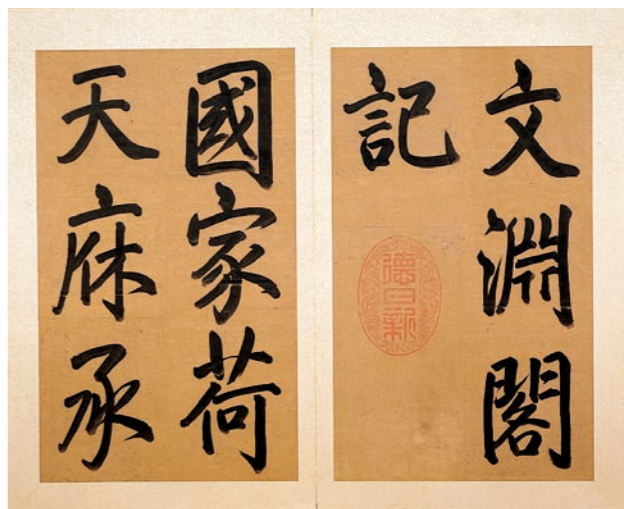 文淵閣
記
德日新
國家荷
天庥承